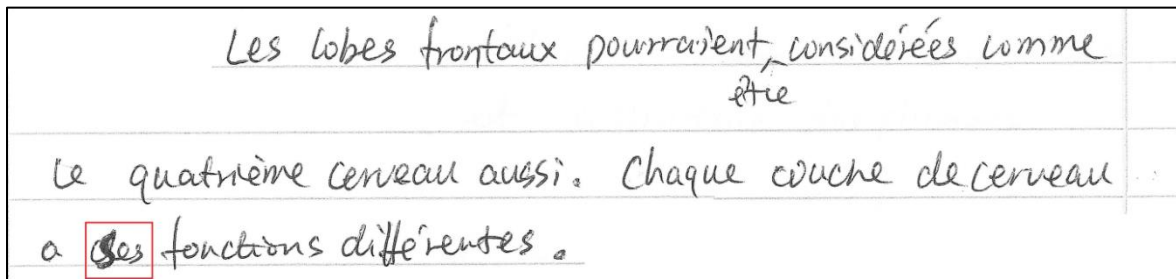 Les lobes frontaux pourraient être considérées comme
le quatrième cerveau aussi. Chaque couche de cerveau
a ses fonctions différentes.